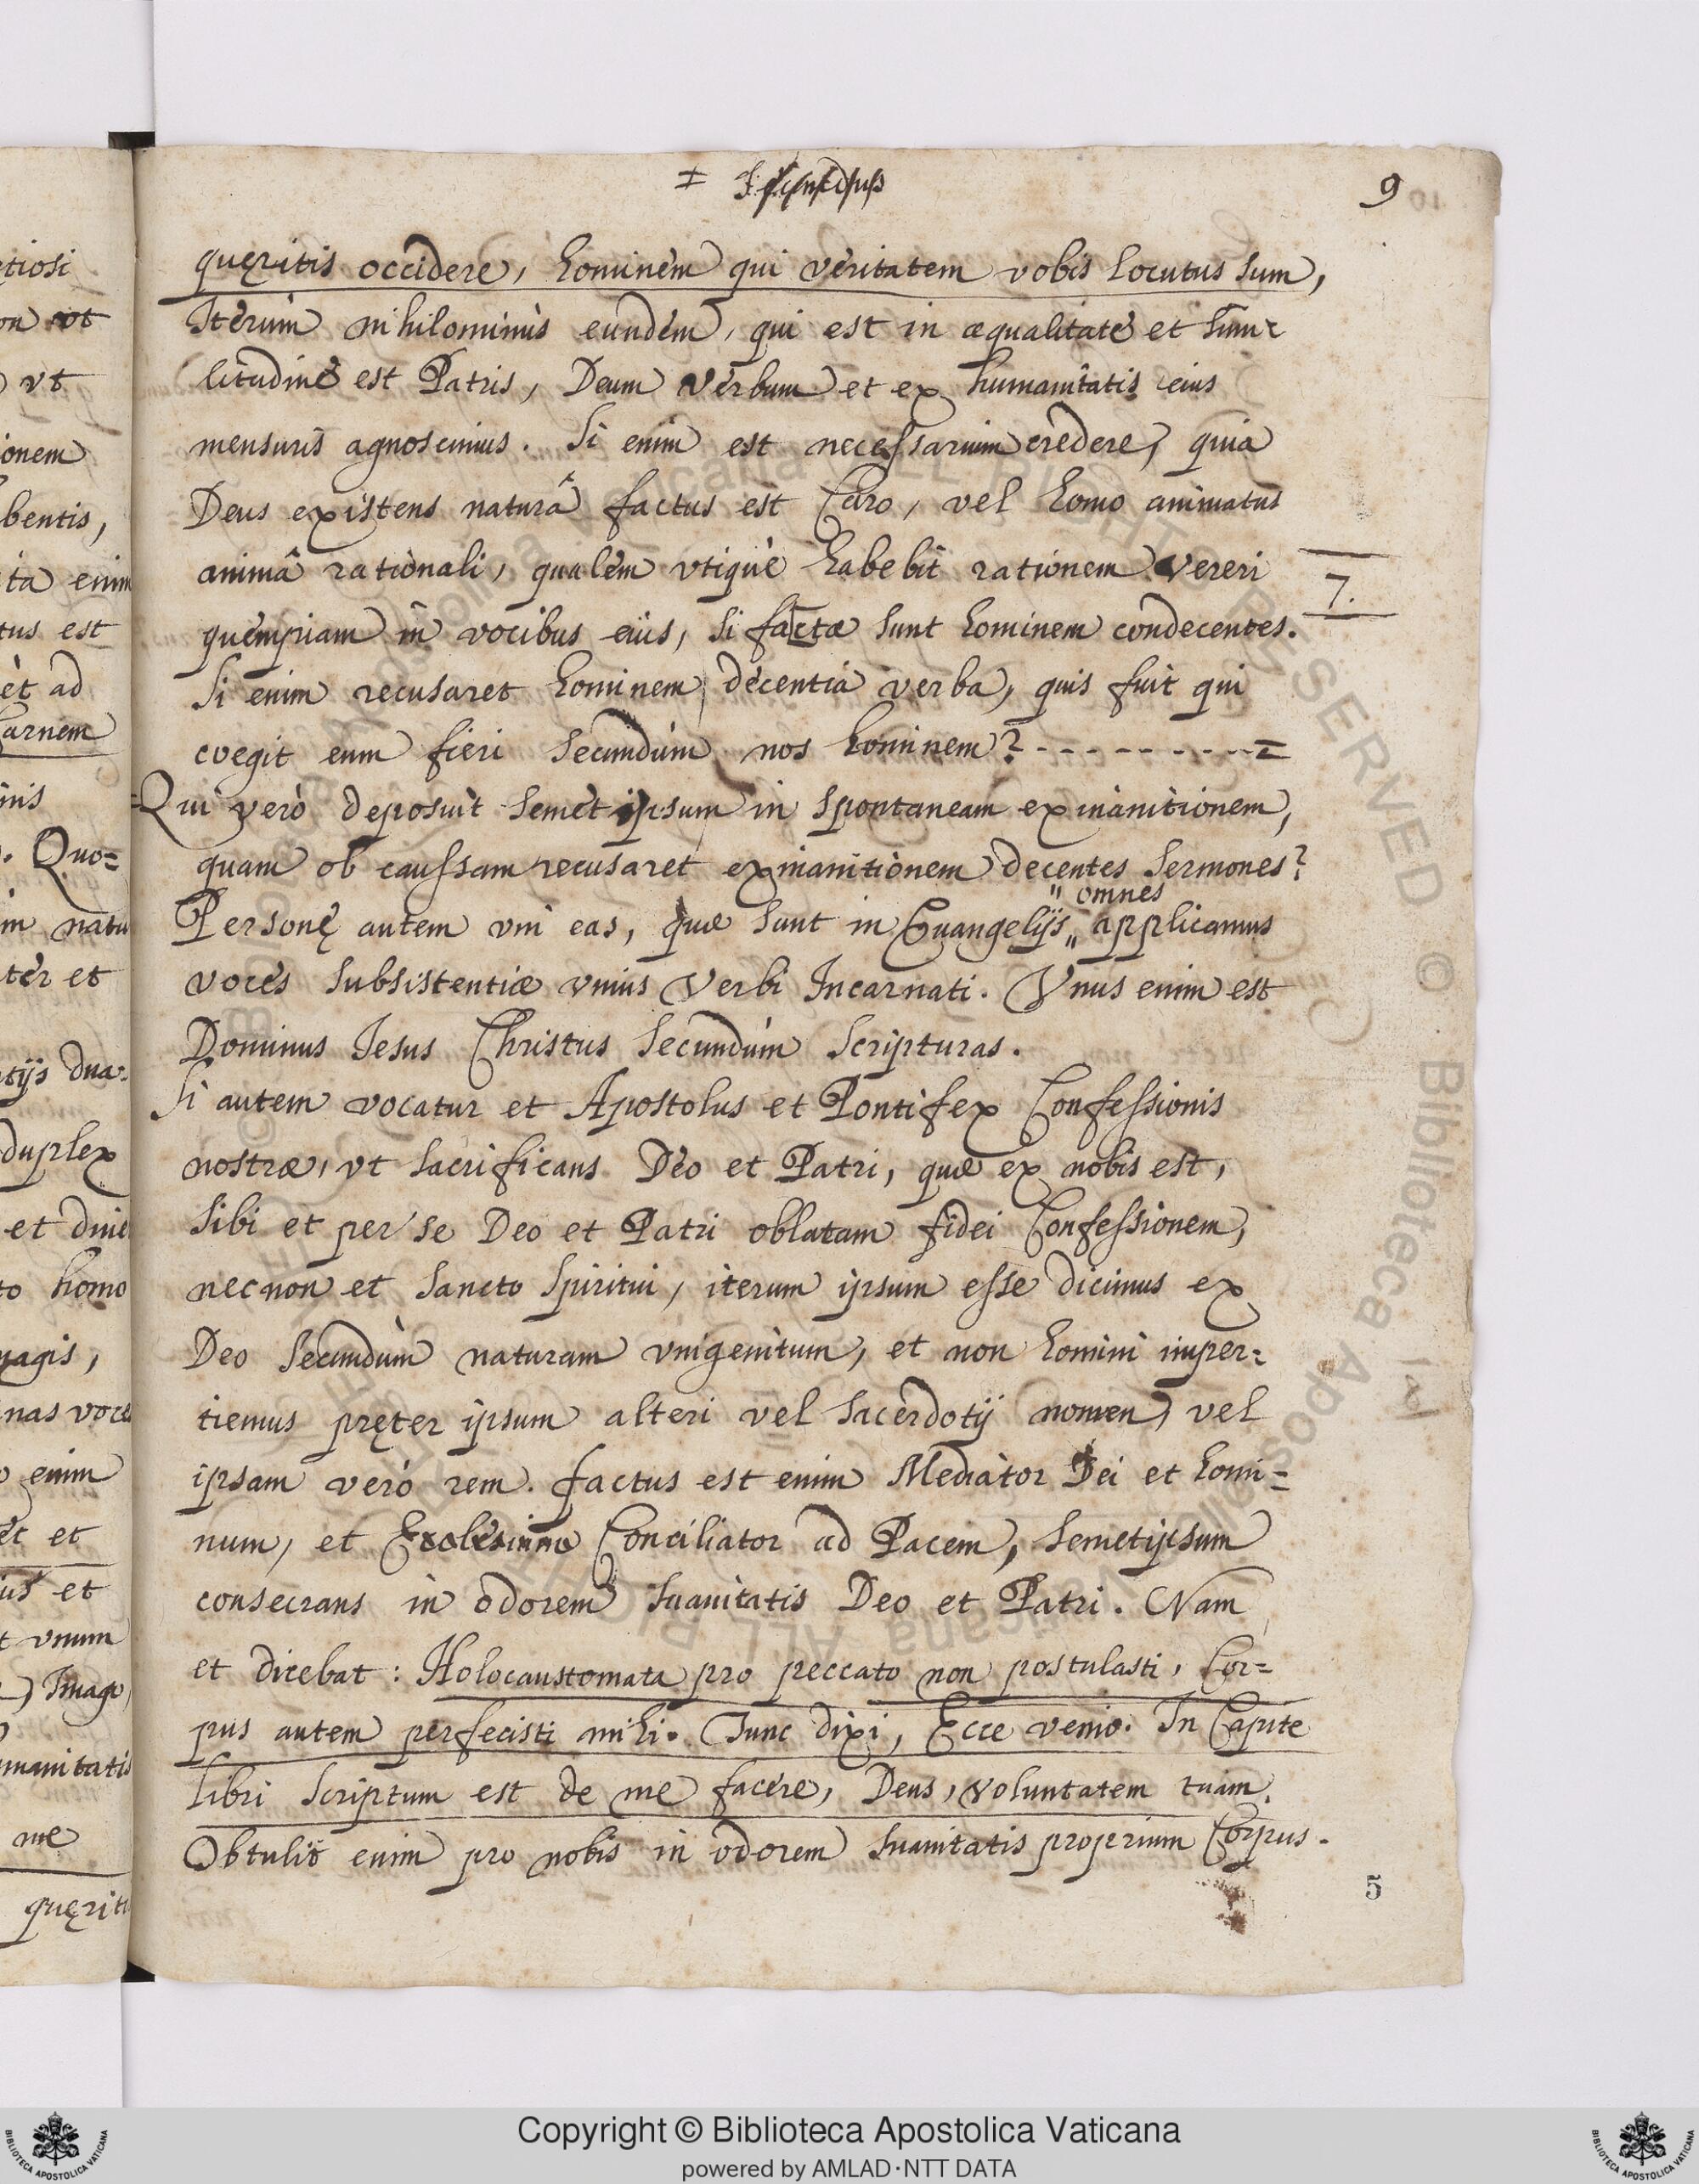 9
quęritis occidere, hominem qui veritatem vobis locutus sum,
Iterùm nihilominùs eundem, qui est in æqualitate et simi-
litudine est Patris, Deum Verbum et ex humanitatis eius
mensuris agnoscimus. Si enim est necessarium credere, quia
Deus existens naturâ factus est Caro, vel homo animatus
animâ rationali, qualem vtiquè habebit rationem vereri
7.
quempiam in vocibus eius, si factæ sunt hominem condecentes.
Si enim recusaret hominem decentia verba, quis fuit qui
coegit eum fieri secundùm nos hominem? - - - - - - - - - =
=Qui verò deposuit semetipsum in spontaneam exinanitionem,
quam ob caussam recusaret exinanitionem decentes sermones?
" omnes
Personę autem vni eas, quæ sunt in Euangelijs " applicamus
voces subsistentiæ vnius Verbi Incarnati. Vnus enim est
Dominus Iesus Christus secundùm Scripturas.
Si autem vocatur et Apostolus et Pontifex Confessionis
nostræ, vt sacrificans Deo et Patri, quæ ex nobis est,
sibi et per se Deo et Patri oblatam fidei Confessionem,
necnon et Sancto Spiritui, iterum ipsum esse dicimus ex
Deo secundùm naturam vnigenitum, et non homini imper=
tiemus pręter ipsum alteri vel Sacerdotij nomen, vel
ipsam verò rem. factus est enim Mediator Dei et homi=
num, et Conciliator ad Pacem, semetipsum
consecrans in odorem suauitatis Deo et Patri. Nam
et dicebat: Holocaustomata pro peccato non postulasti, Cor=
pus autem perfecisti mihi. Tunc dixi, Ecce venio. In Capite
libri scriptum est de me facere, Deus, voluntatem tuam.
Obtulit enim pro nobis in odorem suauitatis proprium Corpus.
5
Copyright © Biblioteca Apostolica Vaticana
powered by AMLAD·NTT DATA